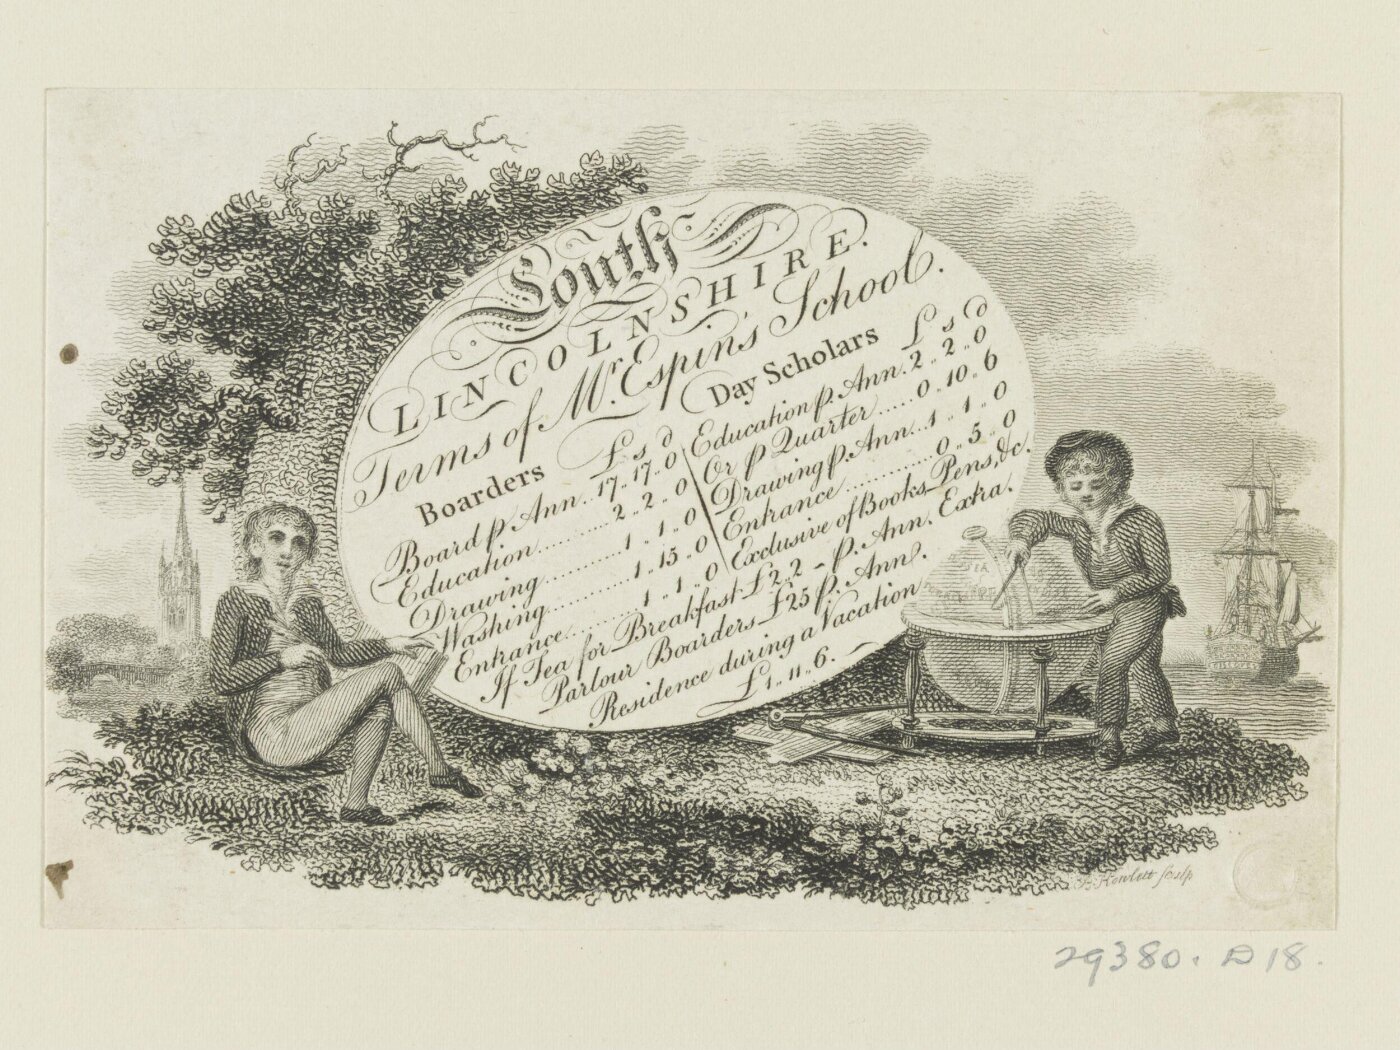 Louth
LINCOLNSHIRE.
Terms of Mr. Espin's School.
Boarders £ s d
Board p Ann.. 17 .. 17 .. 0
Education ........ 2 .. 2 .. 0
Drawing .......... 1 .. 1 .. 0
Washing .......... 1 .. 15 .. 0
Entrance ......... 1 .. 1 .. 0
Day Scholars £ s d
Education p. Ann. 2 .. 2 .. 0
Or p Quarter ...... 0 .. 10 .. 6
Drawing p. Ann... 1 .. 1 .. 0
Entrance .......... 0 .. 5 .. 0
Exclusive of Books Pens, &c.
If Tea for Breakfast £2.2 - p. Ann. Extra.
Parlour Boarders £25 p. Ann.
Residence during a Vacation
£1 .. 11 .. 6.
SEA
Howlett sculp
29380. D18.